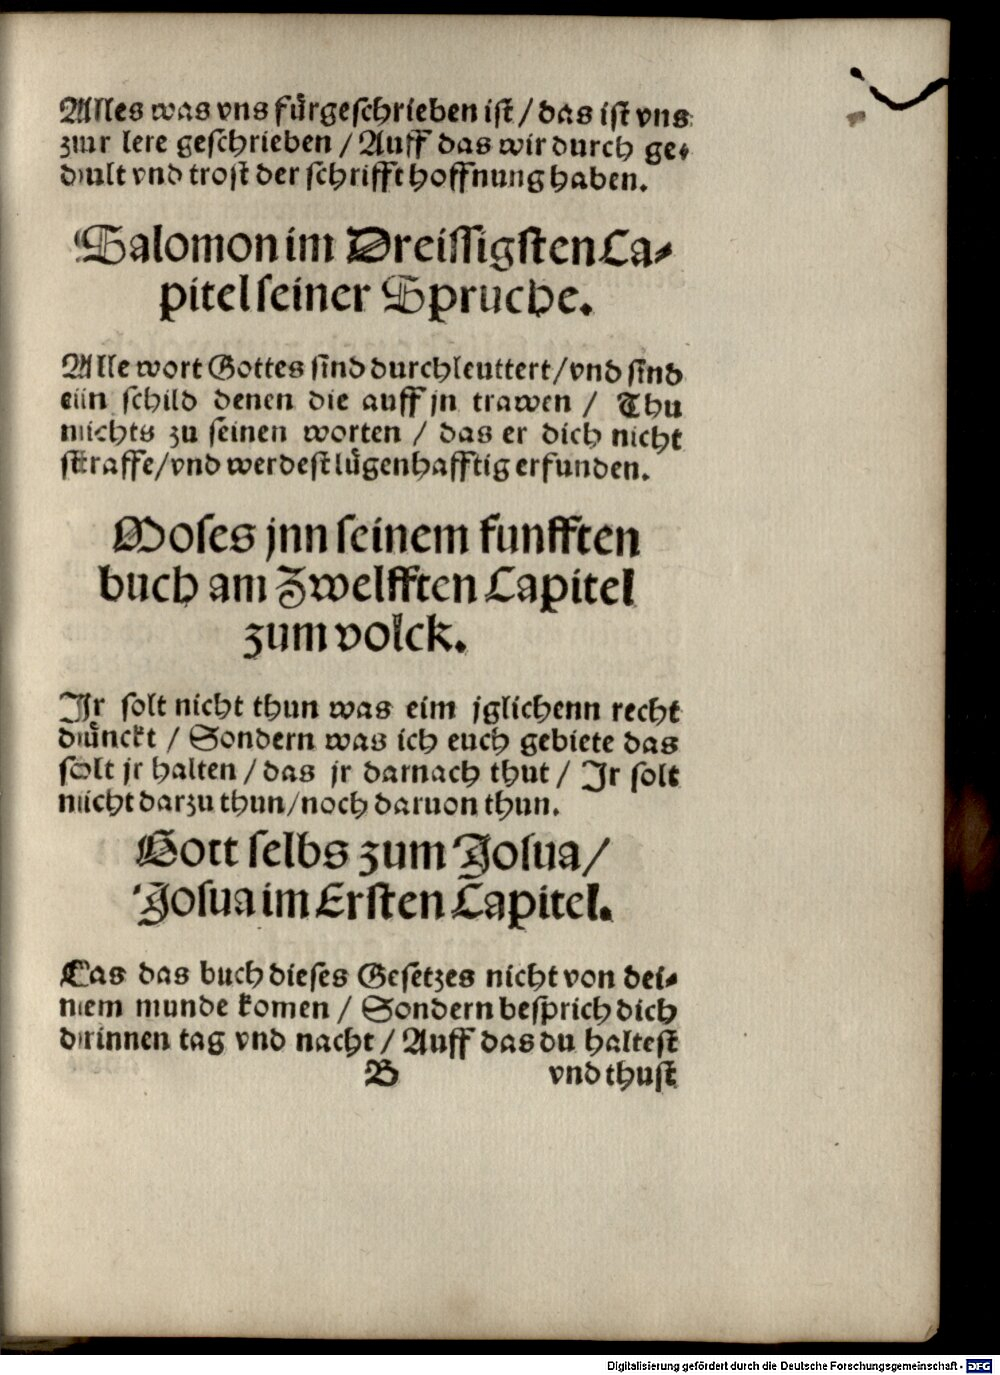 Alles was vns fürgeschrieben ist / das ist vns
zur lere geschrieben / Auff das wir durch ge⸗
dult vnd trost der schrifft hoffnung haben.
Salomon im Dreissigsten Ca⸗
pitel seiner Spruche.
Alle wort Gottes sind durchleuttert / vnd sind
ein schild denen die auff jn trawen / Thu
nichts zu seinen worten / das er dich nicht
straffe / vnd werdest lügenhafftig erfunden.
Moses jnn seinem funfften
buch am Zwelfften Capitel
zum volck.
Jr solt nicht thun was eim jglichenn recht
dünckt / Sondern was ich euch gebiete das
solt jr halten / das jr darnach thut / Jr solt
nicht darzu thun / noch daruon thun.
Gott selbs zum Josua /
Josua im Ersten Capitel.
Las das buch dieses Gesetzes nicht von dei⸗
nem munde komen / Sondern besprich dich
drinnen tag vnd nacht / Auff das du haltest
B vnd thust
Digitalisierung gefördert durch die Deutsche Forschungsgemeinschaft - DFG